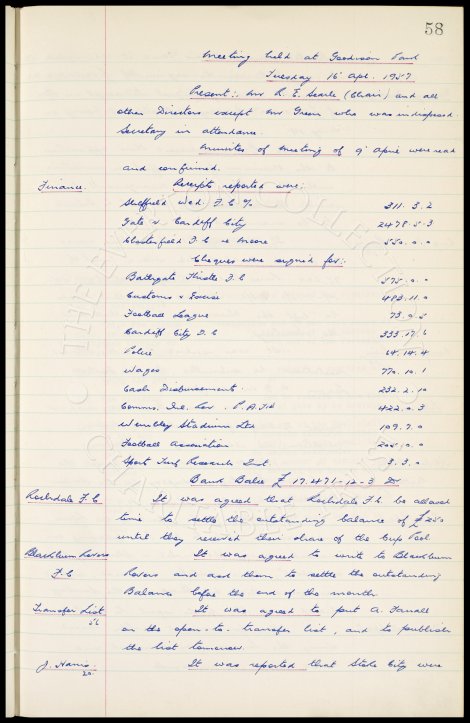 58
Meeting held at Goodison Park
Tuesday 16 Apl. 1957
Present:- Mr R. E. Searle (Chair) and all
other Directors except Mr Green who was indisposed.
Secretary in attendance.
Minutes of Meeting of 9 April were read
and confirmed.
Finance. Receipts reported were:
Sheffield Wed. F.C. % 311. 3. 2
Gate v. Cardiff City 2478. 5. 3
Chesterfield F.C. re Moore 550. 0. 0
Cheques were signed for:-
Bathgate Thistle F.C. 575. 0. 0
Customs & Excise 483. 11. 0
Football League 73. 0. 5
Cardiff City F.C. 333. 17. 6
Police 64. 14. 4
Wages 770. 10. 1
Cash Disbursements. 232. 2. 10
Comms. Inl. Rev. P.A.Y.E 422. 0. 3
Wembley Stadium Ltd 109. 7. 0
Football Association 205. 10. 0
Sport Turf Research Inst. 3. 3. 0
Bank Balce £ 17.471-12-3
Rochdale F.C It was agreed that Rochdale F.C. be allowed
time to settle the outstanding balance of £250
until they received their share of the Cup Pool
Blackburn Rovers It was agreed to write to Blackburn
F.C Rovers and ask them to settle the outstanding
Balance before the end of the month
Transfer List It was agreed to put A. Farrall
56 on the open-to-transfer list, and to publish
the list tomorrow.
J. Harris. It was reported that Stoke City were
20.
THE EVERTON COLLECTION
CHARITABLE